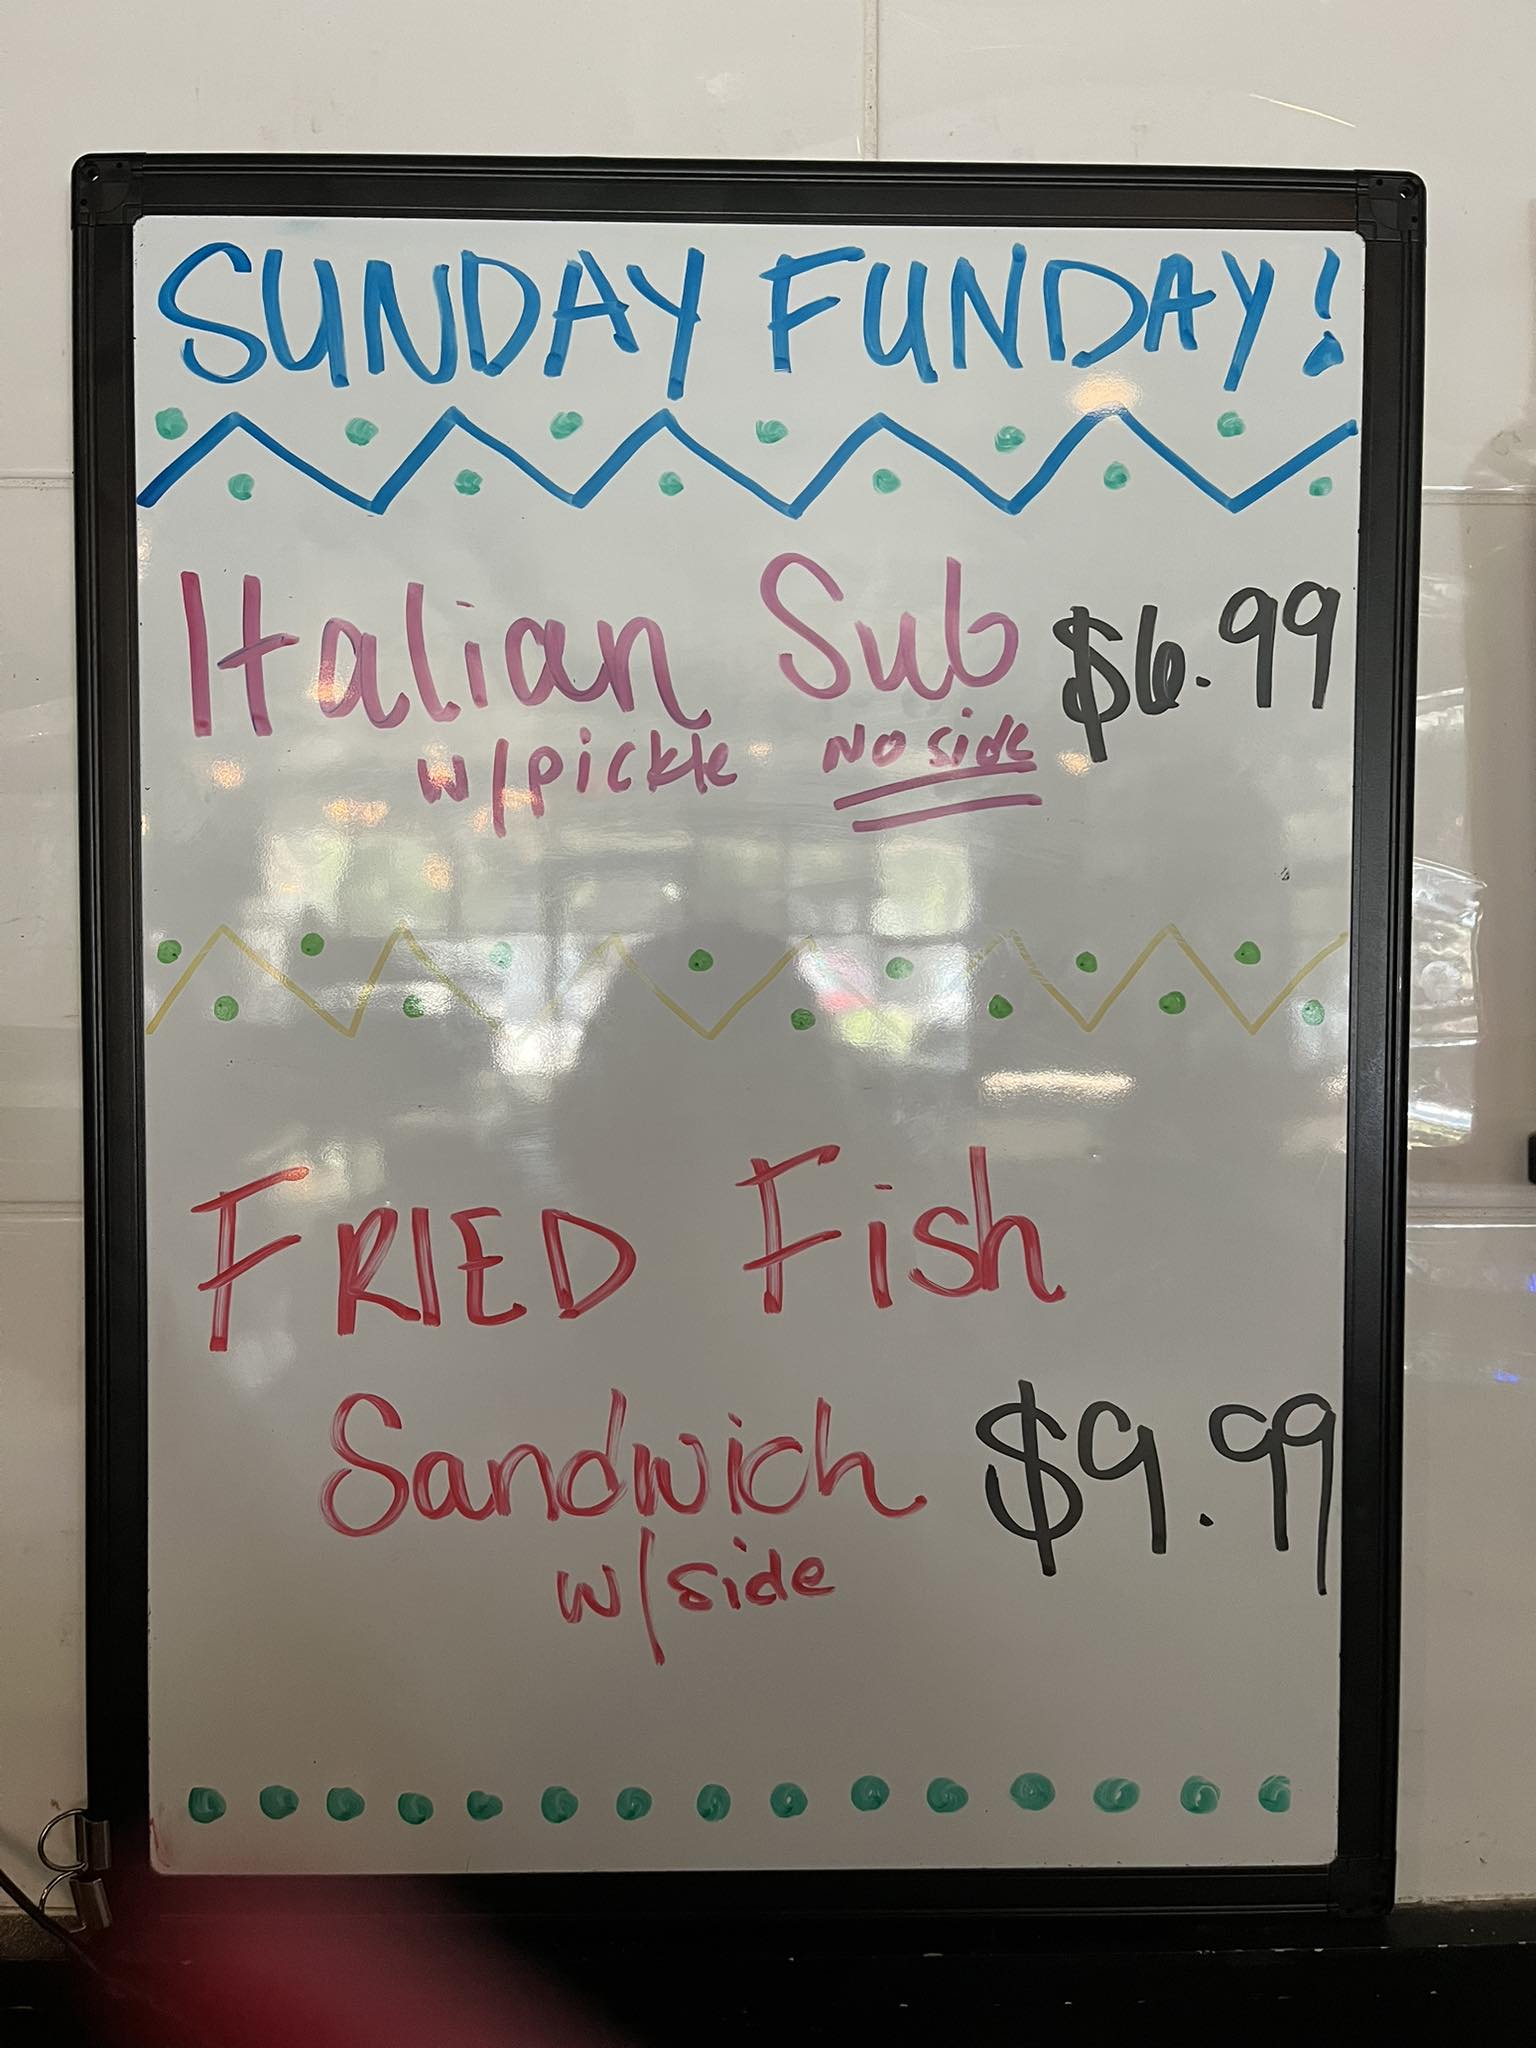 SUNDAY FUNDAY!
Italian Sub $6.99
w/pickle No side
FRIED Fish
Sandwich $9.99
w/side